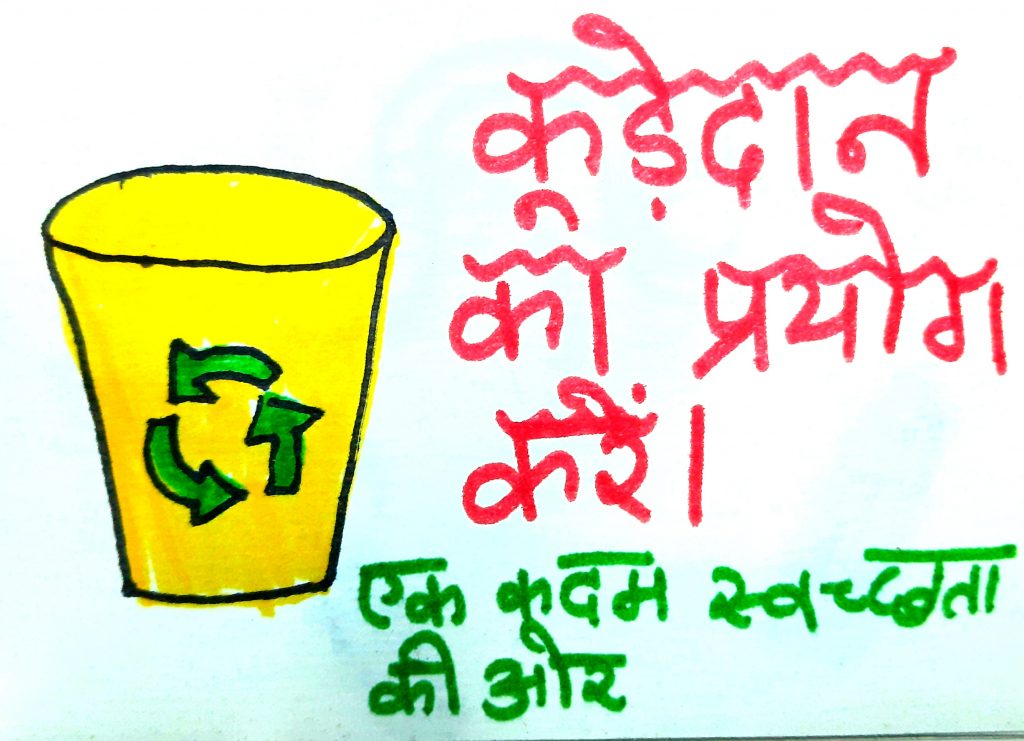 कूड़ेदान
का प्रयोग
करें।
एक कदम स्वच्छता
की ओर